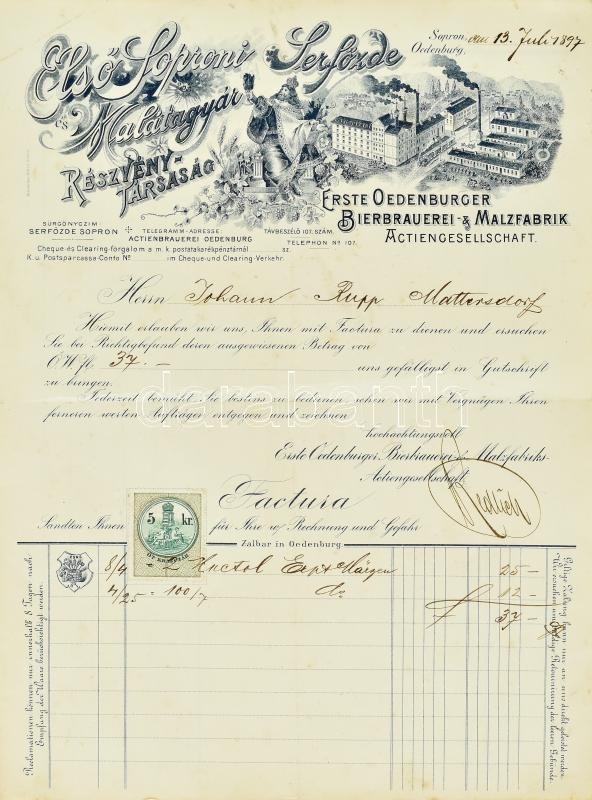 Első Soproni Serfőzde
és Malátagyár
RÉSZVÉNY-
TÁRSASÁG
Sopron,
Oedenburg, am 13. Juli 1897
ERSTE OEDENBURGER
BIERBRAUEREI- & MALZFABRIK
ACTIENGESELLSCHAFT.
SÜRGÖNYCZIM:
SERFŐZDE SOPRON
TELEGRAMM-ADRESSE:
ACTIENBRAUEREI OEDENBURG
TÁVBESZÉLŐ 107. SZÁM.
TELEPHON No 107.
Cheque-és Clearing-forgalom a m. k. postatakarékpénztárnál sz.
K. u. Postsparcassa-Conto No im Cheque-und Clearing-Verkehr.
Herrn Johann Rupp Mattersdorf
Hiemit erlauben wir uns, Ihnen mit Factura zu dienen und ersuchen
Sie bei Richtigbefund deren ausgewiesenen Betrag von
Ö.W.fl. 37.- uns gefälligst in Gutschrift
zu bringen.
Jederzeit bemüht Sie bestens zu bedienen, sehen wir mit Vergnügen Ihren
ferneren werten Aufträgen entgegen und zeichnen
hochachtungsvoll
Erste Oedenburger Bierbrauerei- & Malzfabriks-
Actiengesellschaft.
Factura
5 kr.
Sandten Ihnen für Ihre w/ Rechnung und Gefahr
Zalbar in Oedenburg.
8/4 2 Hectol Exp. Märzen 25 -
4/25 = 100/7 do 12 -
f 37 -
Reclamationen können nur innerhalb 8 Tagen nach
Empfang der Waare berücksichtigt werden.
Giltige Zalung kann nur an uns direkt geleistet werden.
Wir ersuchen um baldige Retournirung der leeren Gebinde.
darabanth